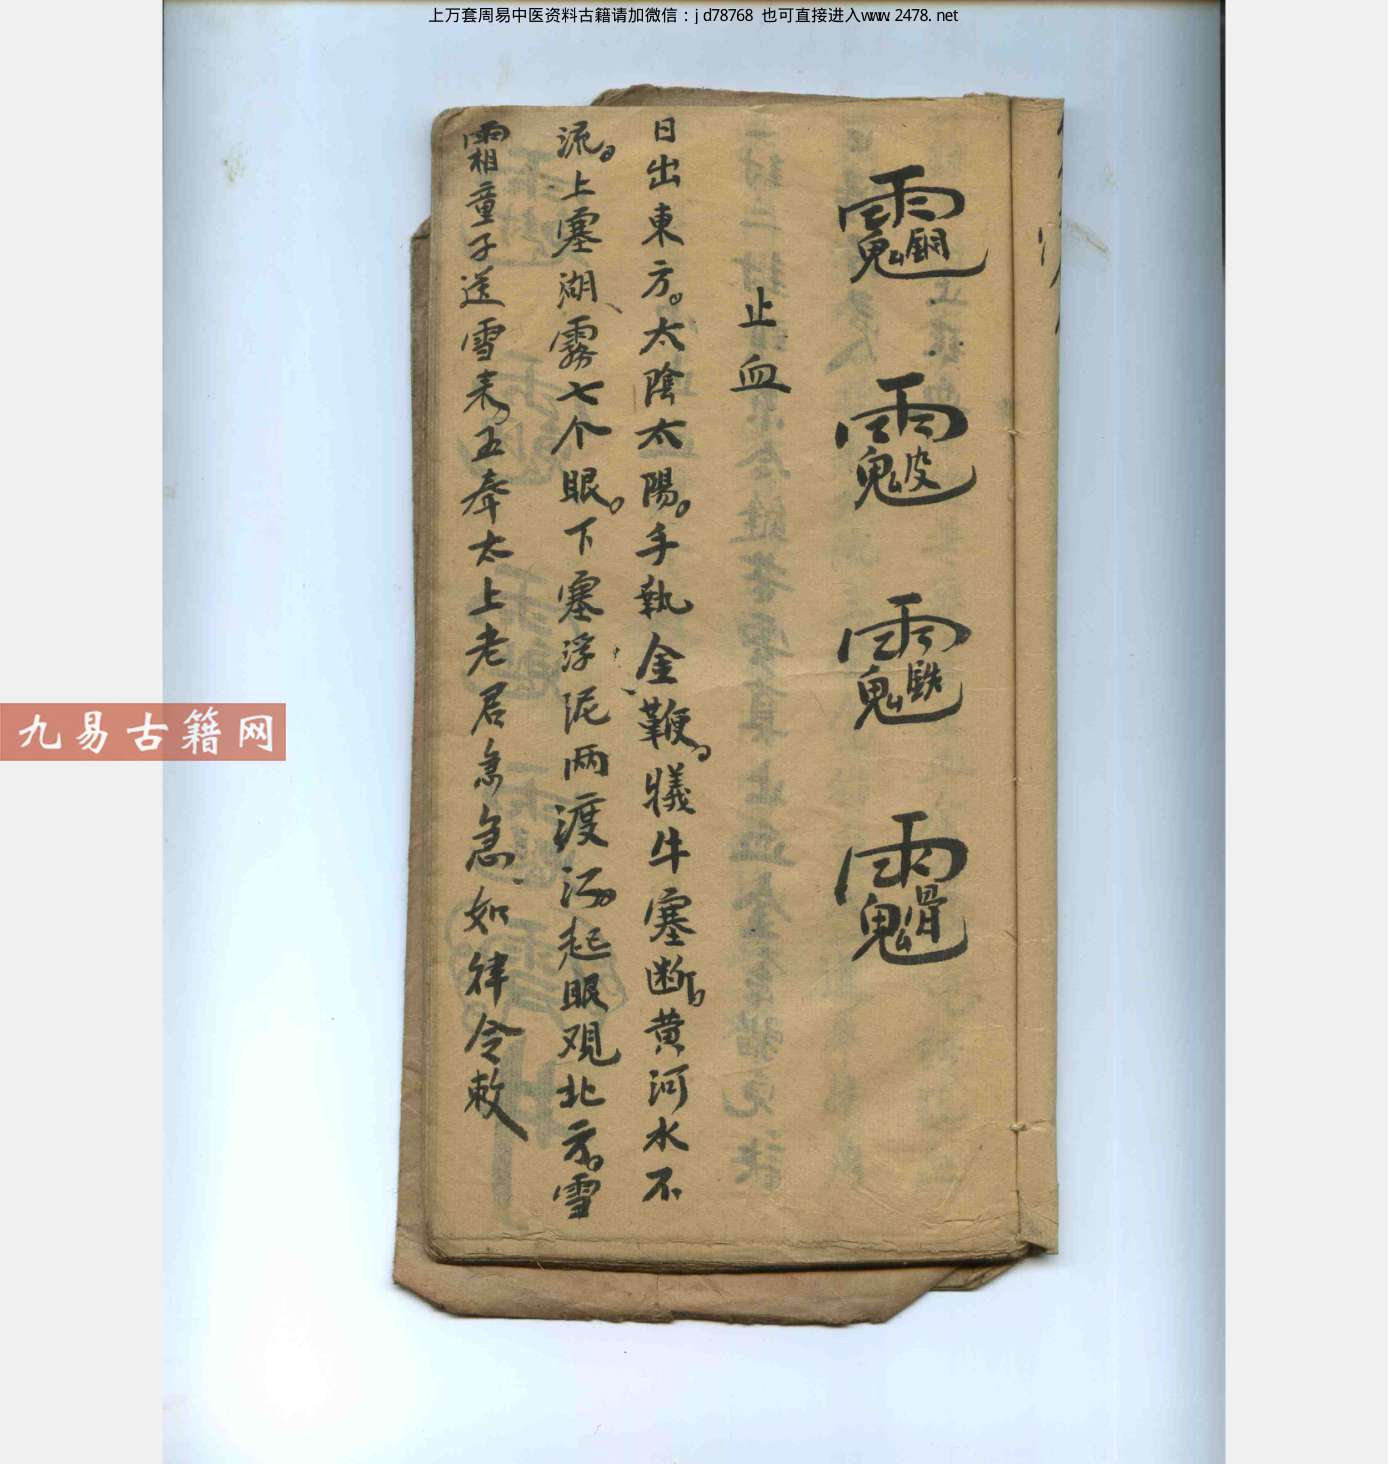 上万套周易中医资料古籍请加微信：jd78768 也可直接进入www.2478.net
止血
日出東方。太陰太陽。手執金鞭。犠牛塞断。黄河水不
流。上塞湖霧七个眼。下塞浮泥两渡河。起眼观北方。雪
霜童子送雪来。五奉太上老君急急如律令敕
九易古籍网